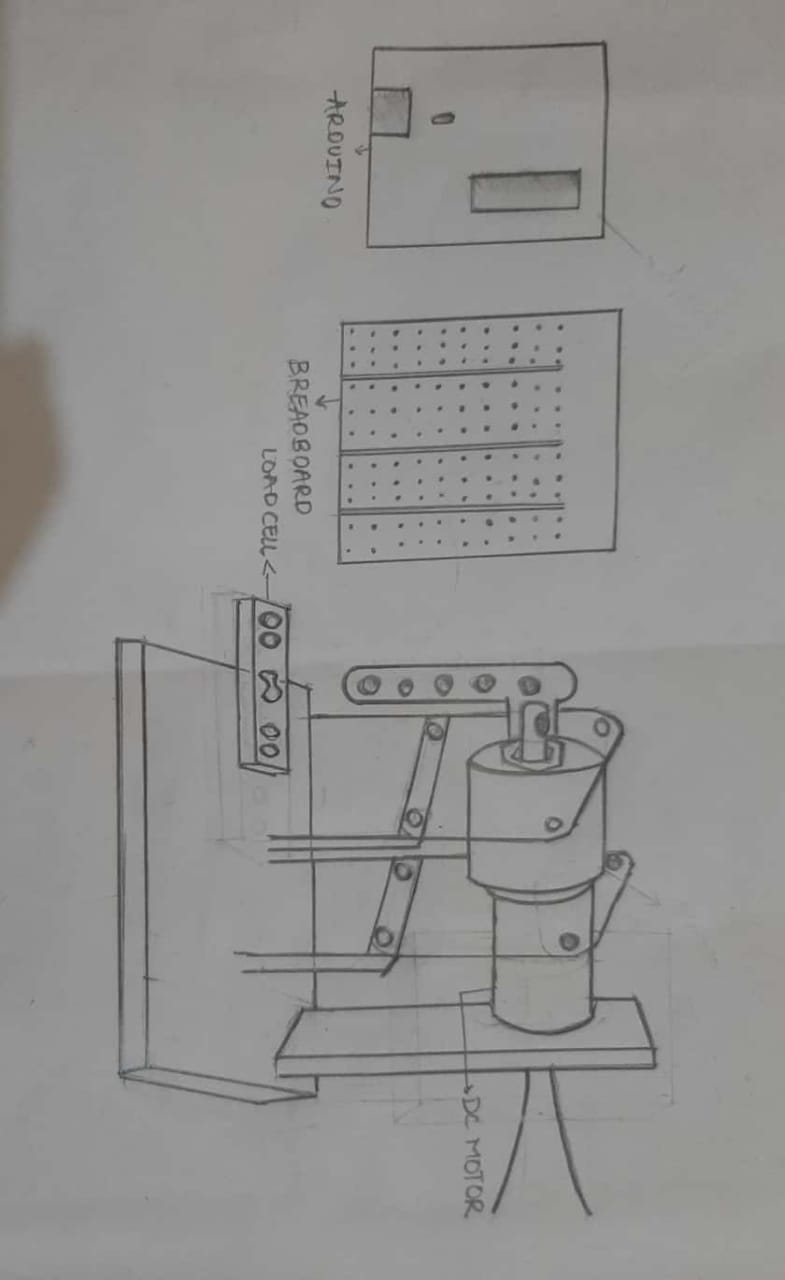 ARDUINO
BREADBOARD
LOAD CELL
DC MOTOR